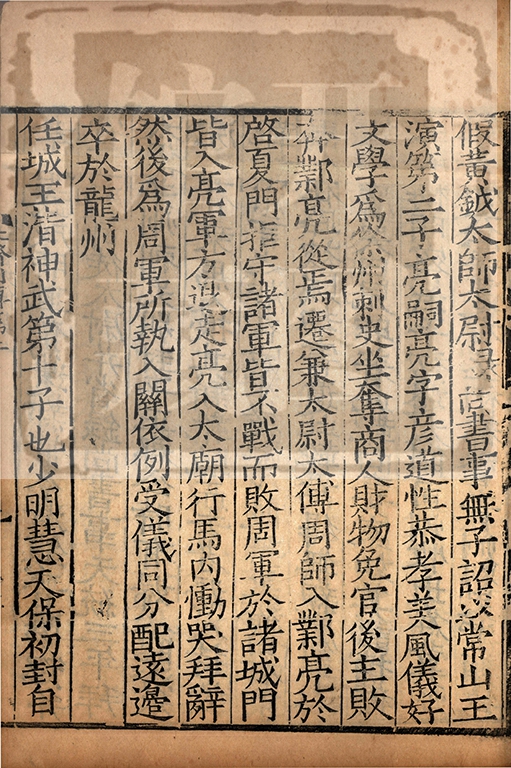 假黃鉞太師太尉录尚書事無子詔以常山王
演第二子亮嗣亮字彦道性恭孝美風儀好
文學爲徐州刺史坐奪商人財物免官後主敗
奔鄴亮從焉遷兼太尉太傅周師入鄴亮於
啓夏門拒守諸軍皆不戰而敗周軍於諸城門
皆入亮軍方退走亮入太廟行馬内慟哭拜辭
然後爲周軍所執入關依例受儀同分配遠邊
卒於龍州
任城王湝神武第十子也少明慧天保初封自